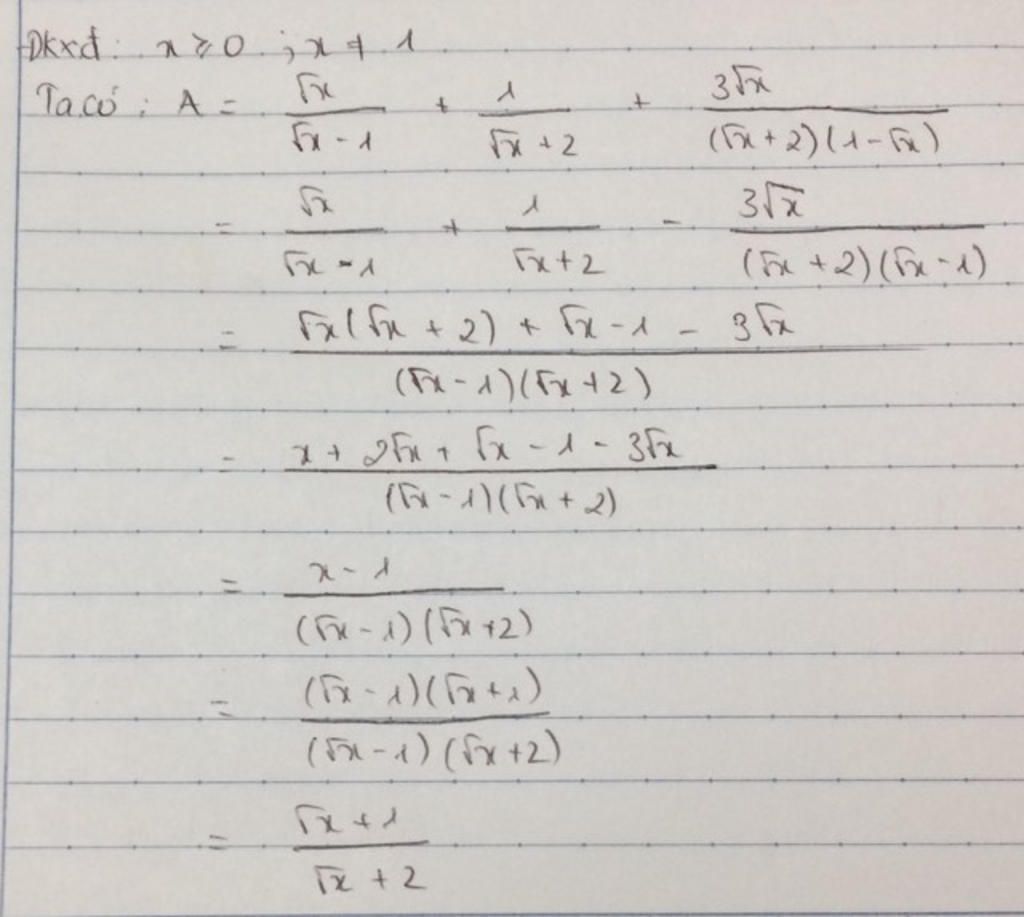 Đkxđ: x ≥ 0 ; x ≠ 1
Ta có: A = √x/(√x - 1) + 1/(√x + 2) + 3√x/((√x + 2)(1 - √x))
= √x/(√x - 1) + 1/(√x + 2) - 3√x/((√x + 2)(√x - 1))
= (√x(√x + 2) + √x - 1 - 3√x)/((√x - 1)(√x + 2))
= (x + 2√x + √x - 1 - 3√x)/((√x - 1)(√x + 2))
= (x - 1)/((√x - 1)(√x + 2))
= ((√x - 1)(√x + 1))/((√x - 1)(√x + 2))
= (√x + 1)/(√x + 2)